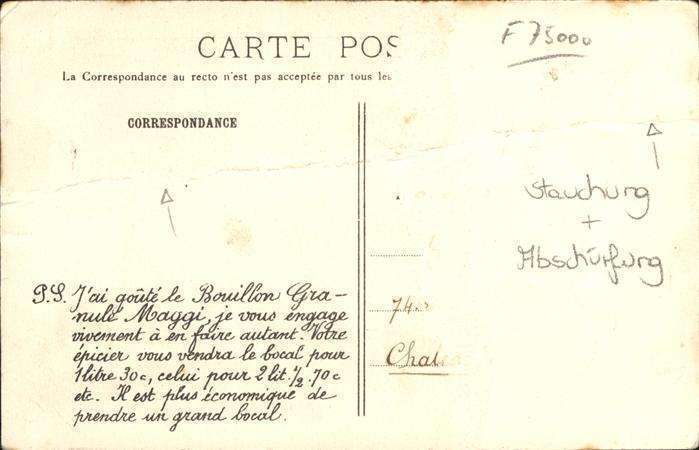 F 75000
CARTE POS
La Correspondance au recto n'est pas acceptée par tous les
CORRESPONDANCE
Stauchung
+
Abschürfung
P.S. J'ai goûté le Bouillon Gra-
nulé Maggi, je vous engage
vivement à en faire autant. Votre
épicier vous vendra le bocal pour
1 litre 30c, celui pour 2 lit. 1/2 .70c
etc. Il est plus économique de
prendre un grand bocal.
74
Chal